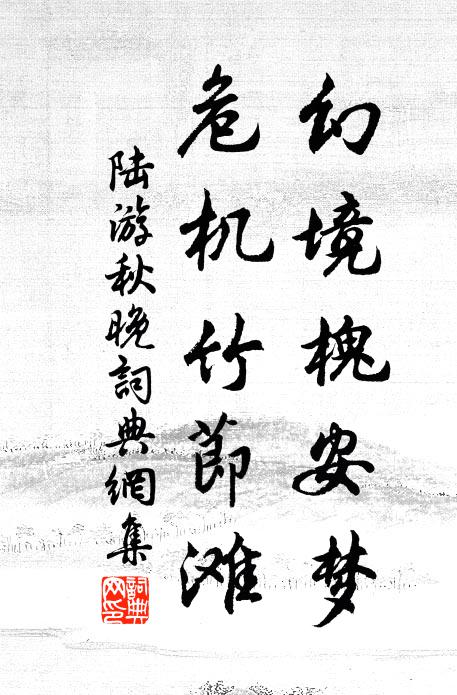 幻境槐安梦
危机竹節滩
陆游秋晚詞典網集
詞典网印